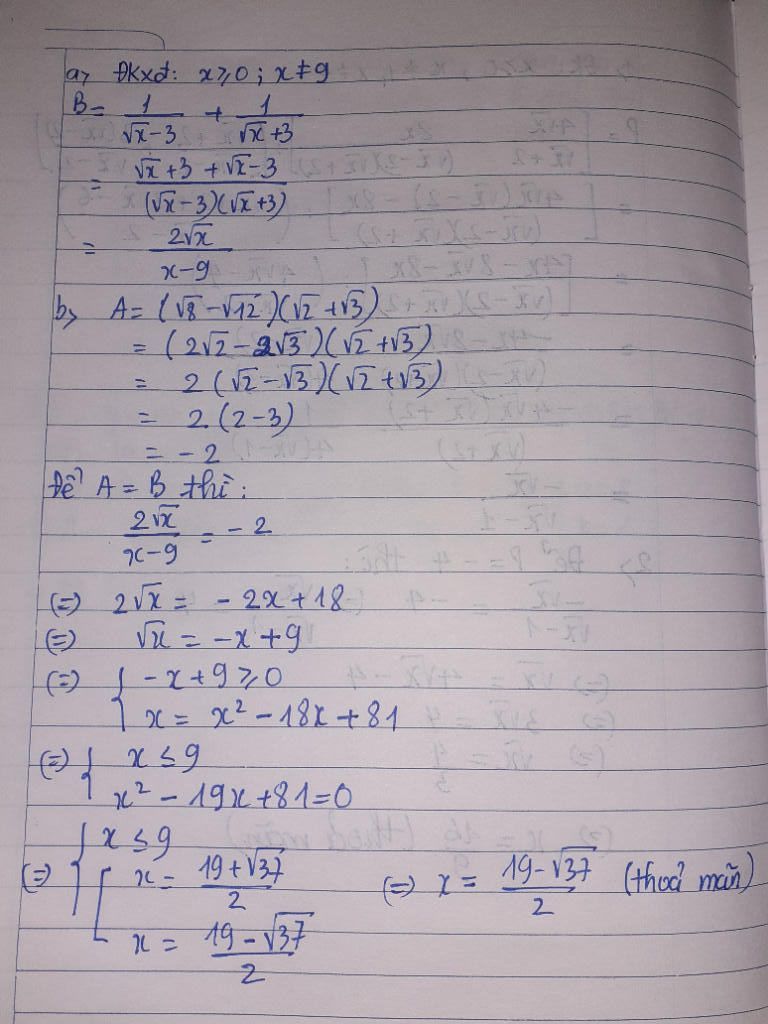 a> Đkxđ: x ≥ 0 ; x ≠ 9
B = 1/(√x - 3) + 1/(√x + 3)
= (√x + 3 + √x - 3)/((√x - 3)(√x + 3))
= 2√x/(x - 9)
b> A = (√8 - √12)(√2 + √3)
= (2√2 - 2√3)(√2 + √3)
= 2(√2 - √3)(√2 + √3)
= 2.(2 - 3)
= - 2
Để A = B thì:
2√x/(x - 9) = - 2
(=) 2√x = - 2x + 18
(=) √x = - x + 9
(=) { - x + 9 ≥ 0
x = x² - 18x + 81
(=) { x ≤ 9
x² - 19x + 81 = 0
(=) { x ≤ 9
[ x = (19 + √37)/2 (=) x = (19 - √37)/2 (thoả mãn)
x = (19 - √37)/2